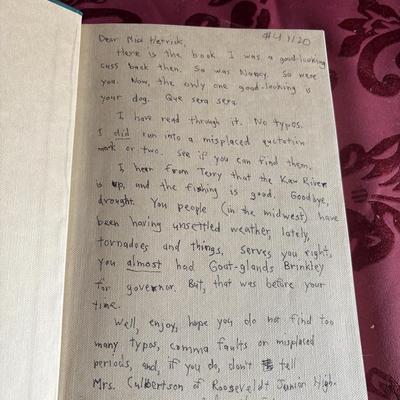 #41120
Dear Miss Hetrick,
Here is the book. I was a good-looking
cuss back then. So was Nancy. So were
you. Now, the only one good-looking is
your dog. Que sera sera.
I have read through it. No typos.
I did run into a misplaced quotation
mark or two. See if you can find them.
I hear from Terry that the Kaw River
is up, and the fishing is good. Goodbye,
drought. You people (in the midwest) have
been having unsettled weather, lately,
tornadoes and things. Serves you right,
you almost had Goat-glands Brinkley
for governor. But, that was before your
time.
Well, enjoy, hope you do not find too
many typos, comma faults or misplaced
periods, and, if you do, don't tell
Mrs. Culbertson of Rooseveldt Junior High.